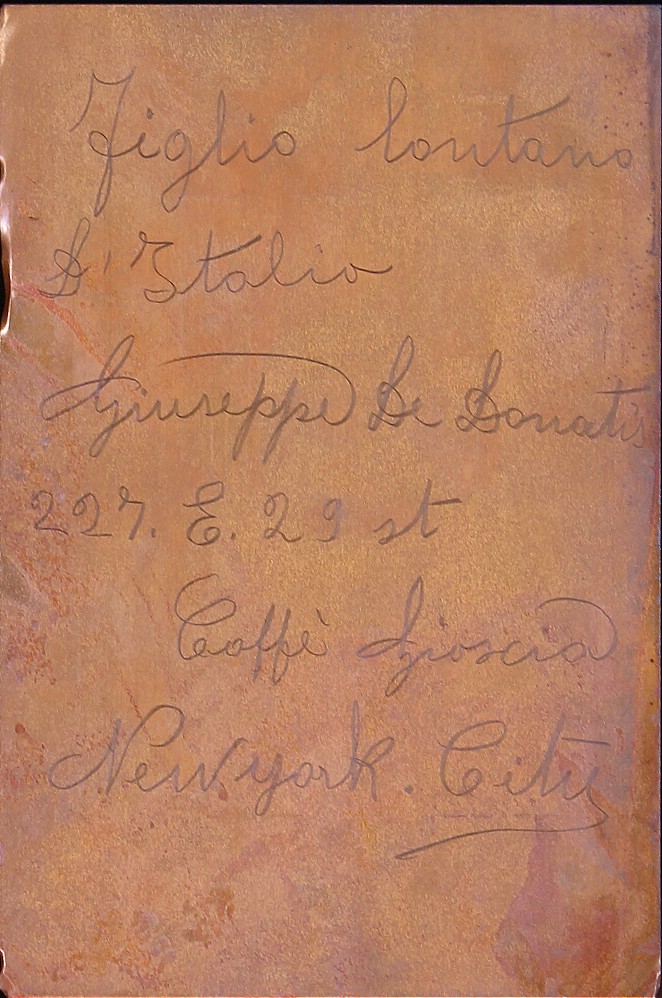 Figlio lontano
D'Italia
Giuseppe De Donatis
227. E. 29 st
Caffè Gioscia
New york. City